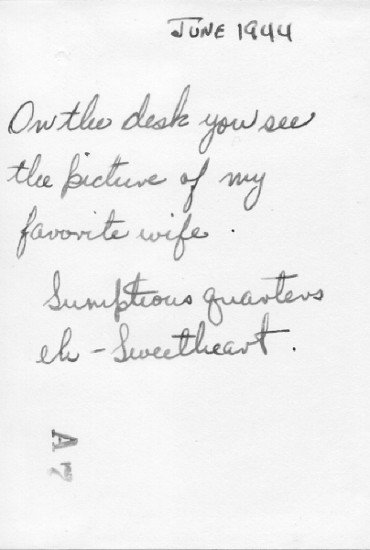 JUNE 1944
On the desk you see
the picture of my
favorite wife.
Sumptious quarters
eh - Sweetheart.
A7